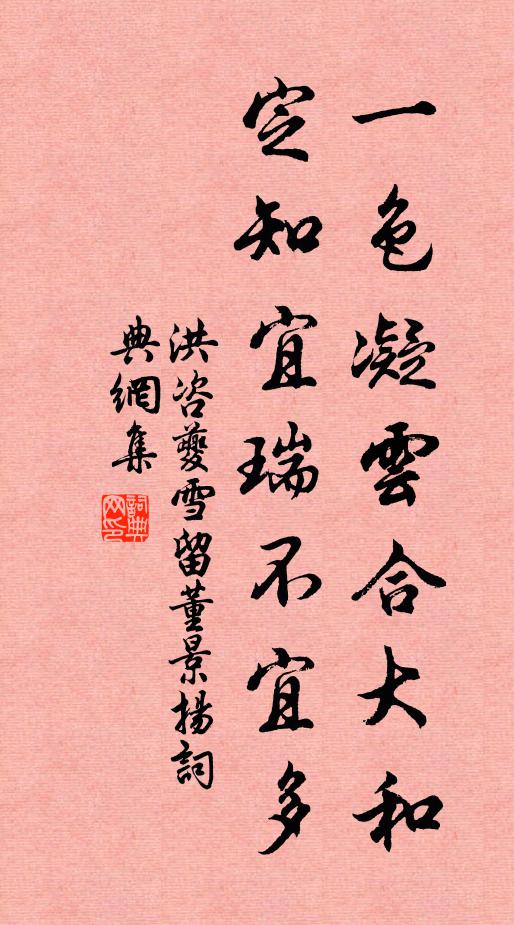 一色凝雲合大和
定知宜瑞不宜多
洪咨夔雪留董景揚詞
典網集
詞典网印